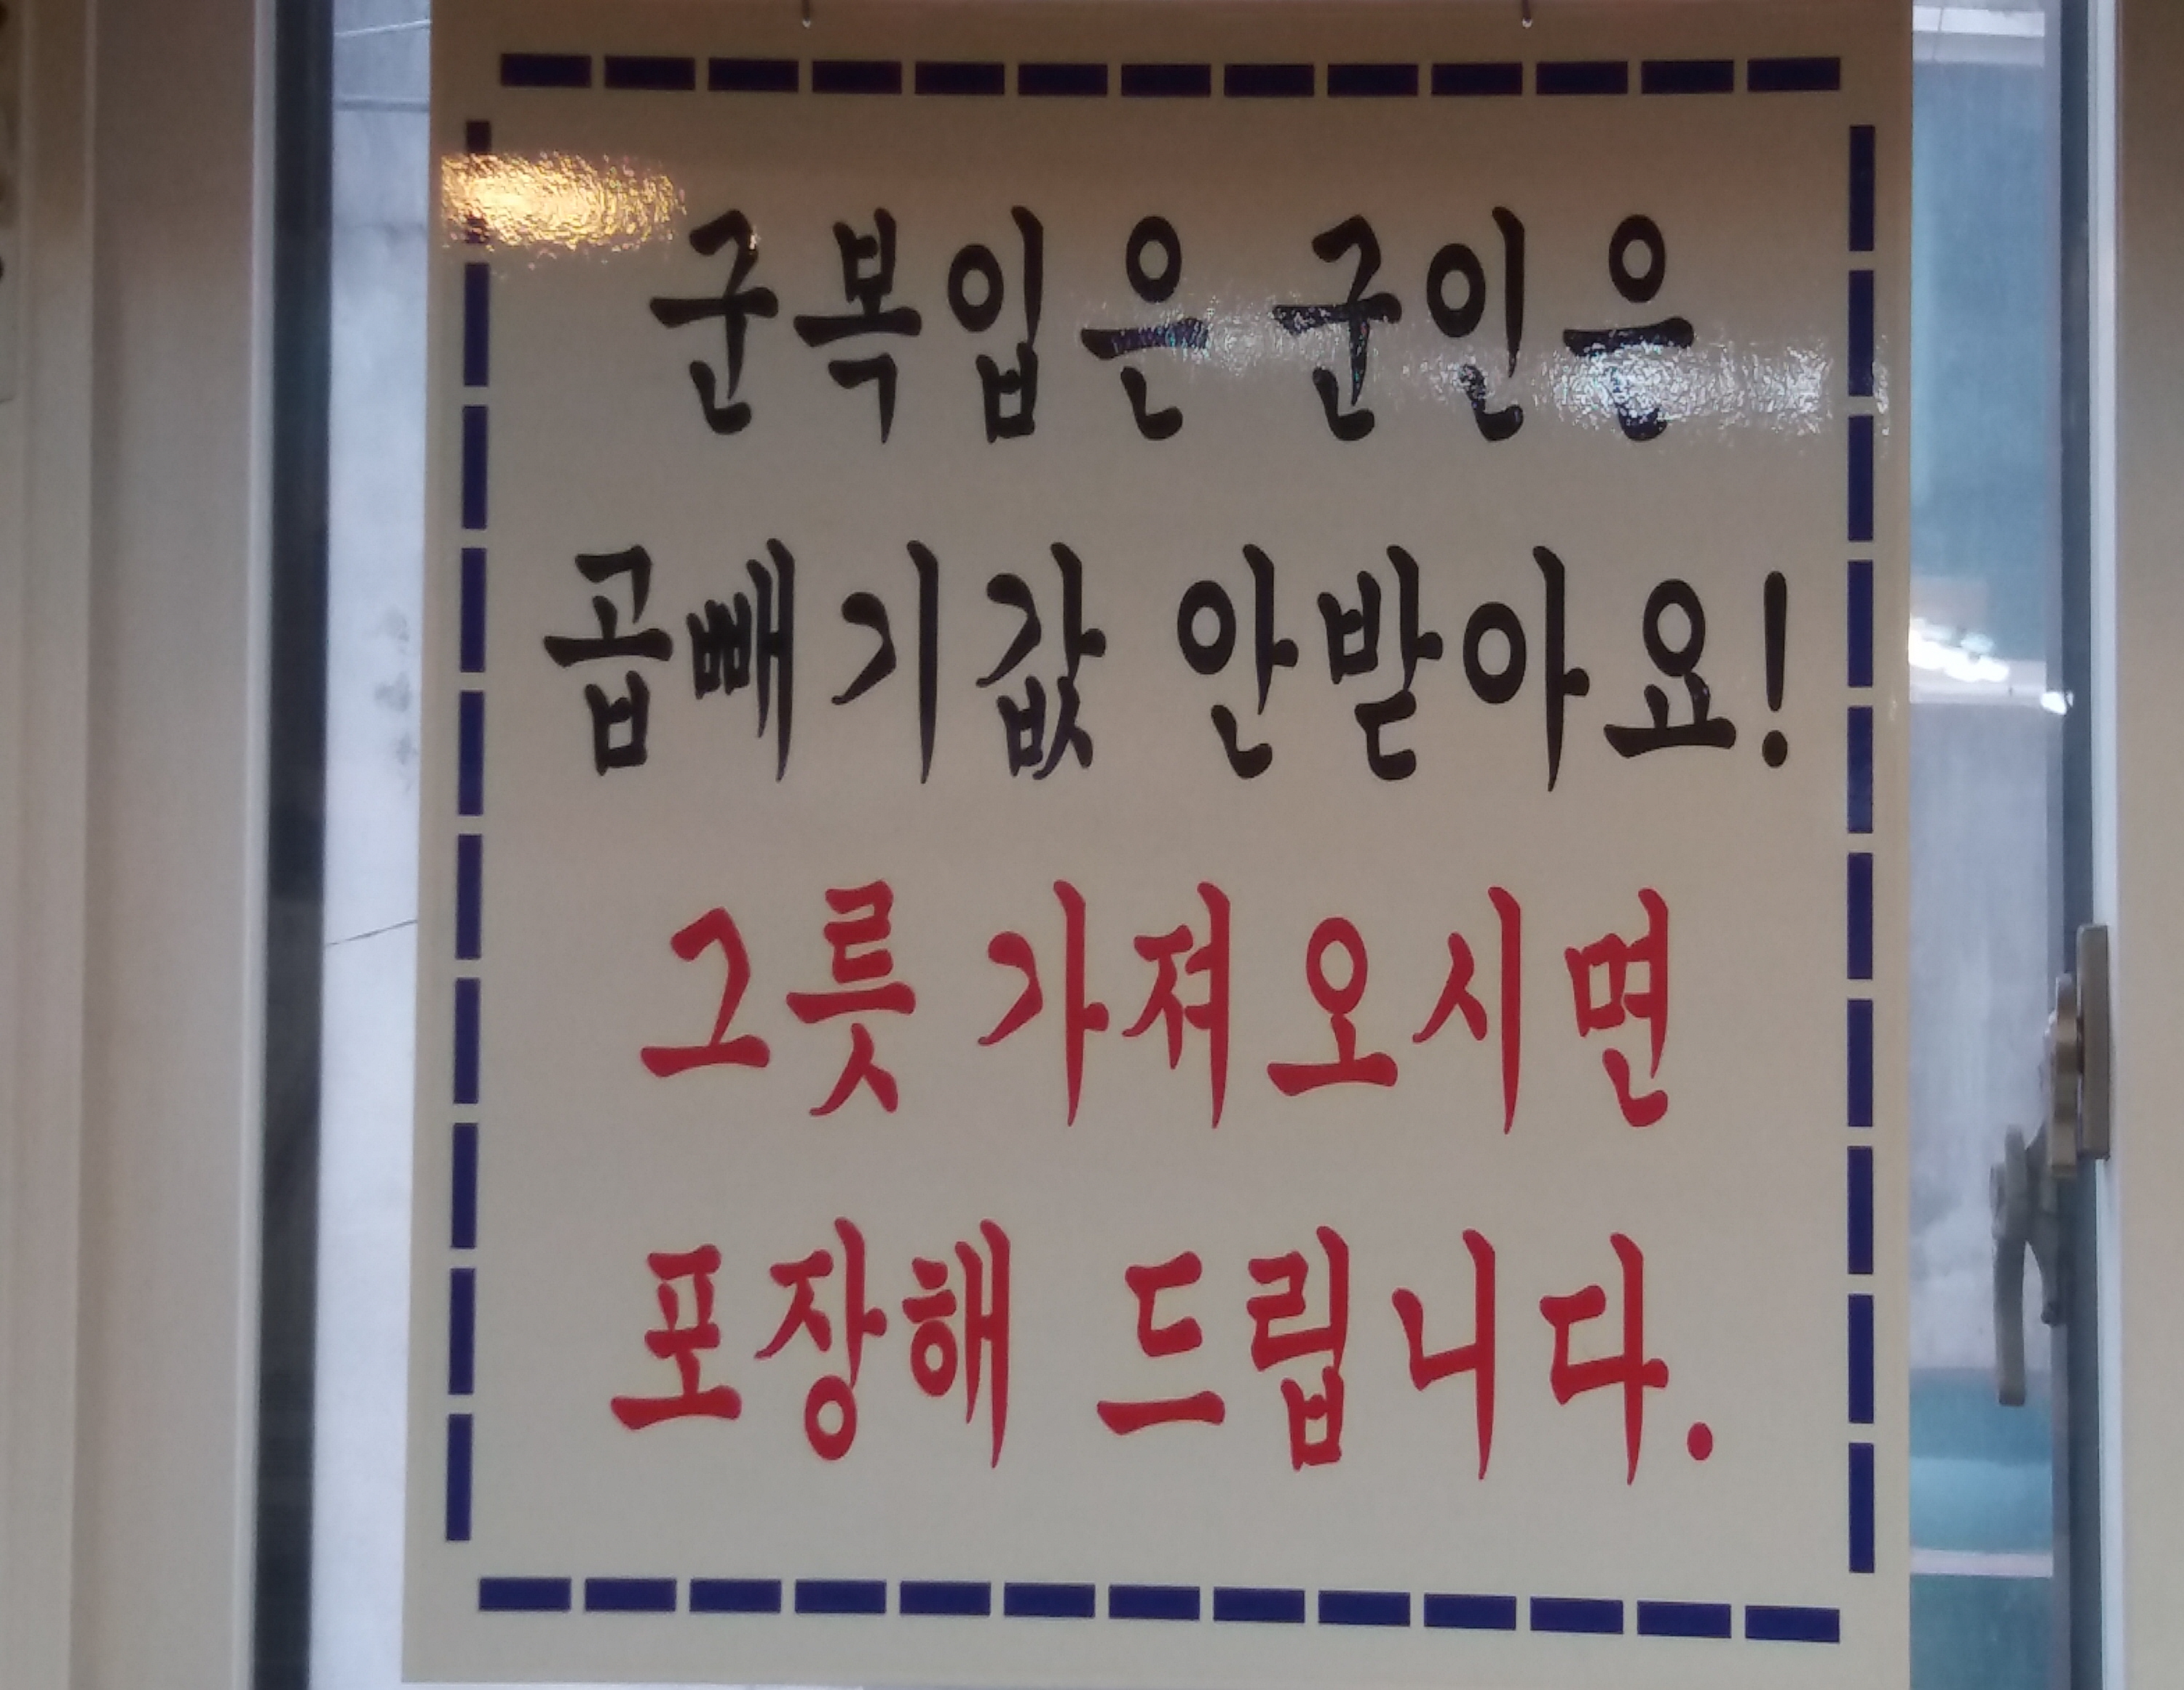 군복입은 군인은
곱빼기값 안받아요!
그릇 가져오시면
포장해 드립니다.